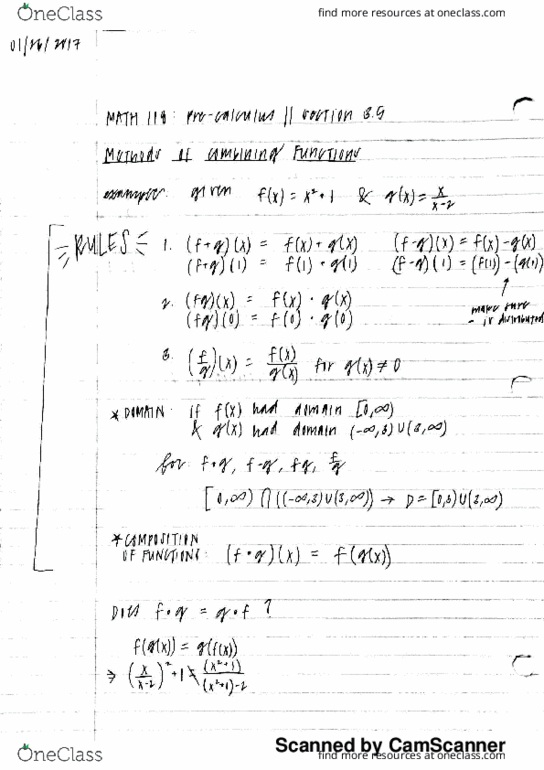 OneClass
find more resources at oneclass.com
01/26/2017
MATH 119: Pre-calculus || section 3.5
Methods of combining Functions
examples: given f(x) = x² + 1 & g(x) = x/(x-2)
RULES 1. (f+g)(x) = f(x) + g(x) (f-g)(x) = f(x) - g(x)
(f+g)(1) = f(1) + g(1) (f-g)(1) = (f(1)) - (g(1))
make sure
- is distributed
2. (fg)(x) = f(x) · g(x)
(fg)(0) = f(0) · g(0)
3. (f/g)(x) = f(x)/g(x) for g(x) ≠ 0
* DOMAIN: if f(x) had domain [0,∞)
& g(x) had domain (-∞,3)∪(3,∞)
for: f+g, f-g, fg, f/g
[0,∞) ∩ ((-∞,3)∪(3,∞)) → D = [0,3)∪(3,∞)
* COMPOSITION
OF FUNCTIONS: (f∘g)(x) = f(g(x))
DOES f∘g = g∘f ?
f(g(x)) = g(f(x))
⇒ (x/(x-2))² + 1 ≠ (x²+1)/((x²+1)-2)
Scanned by CamScanner
OneClass
find more resources at oneclass.com